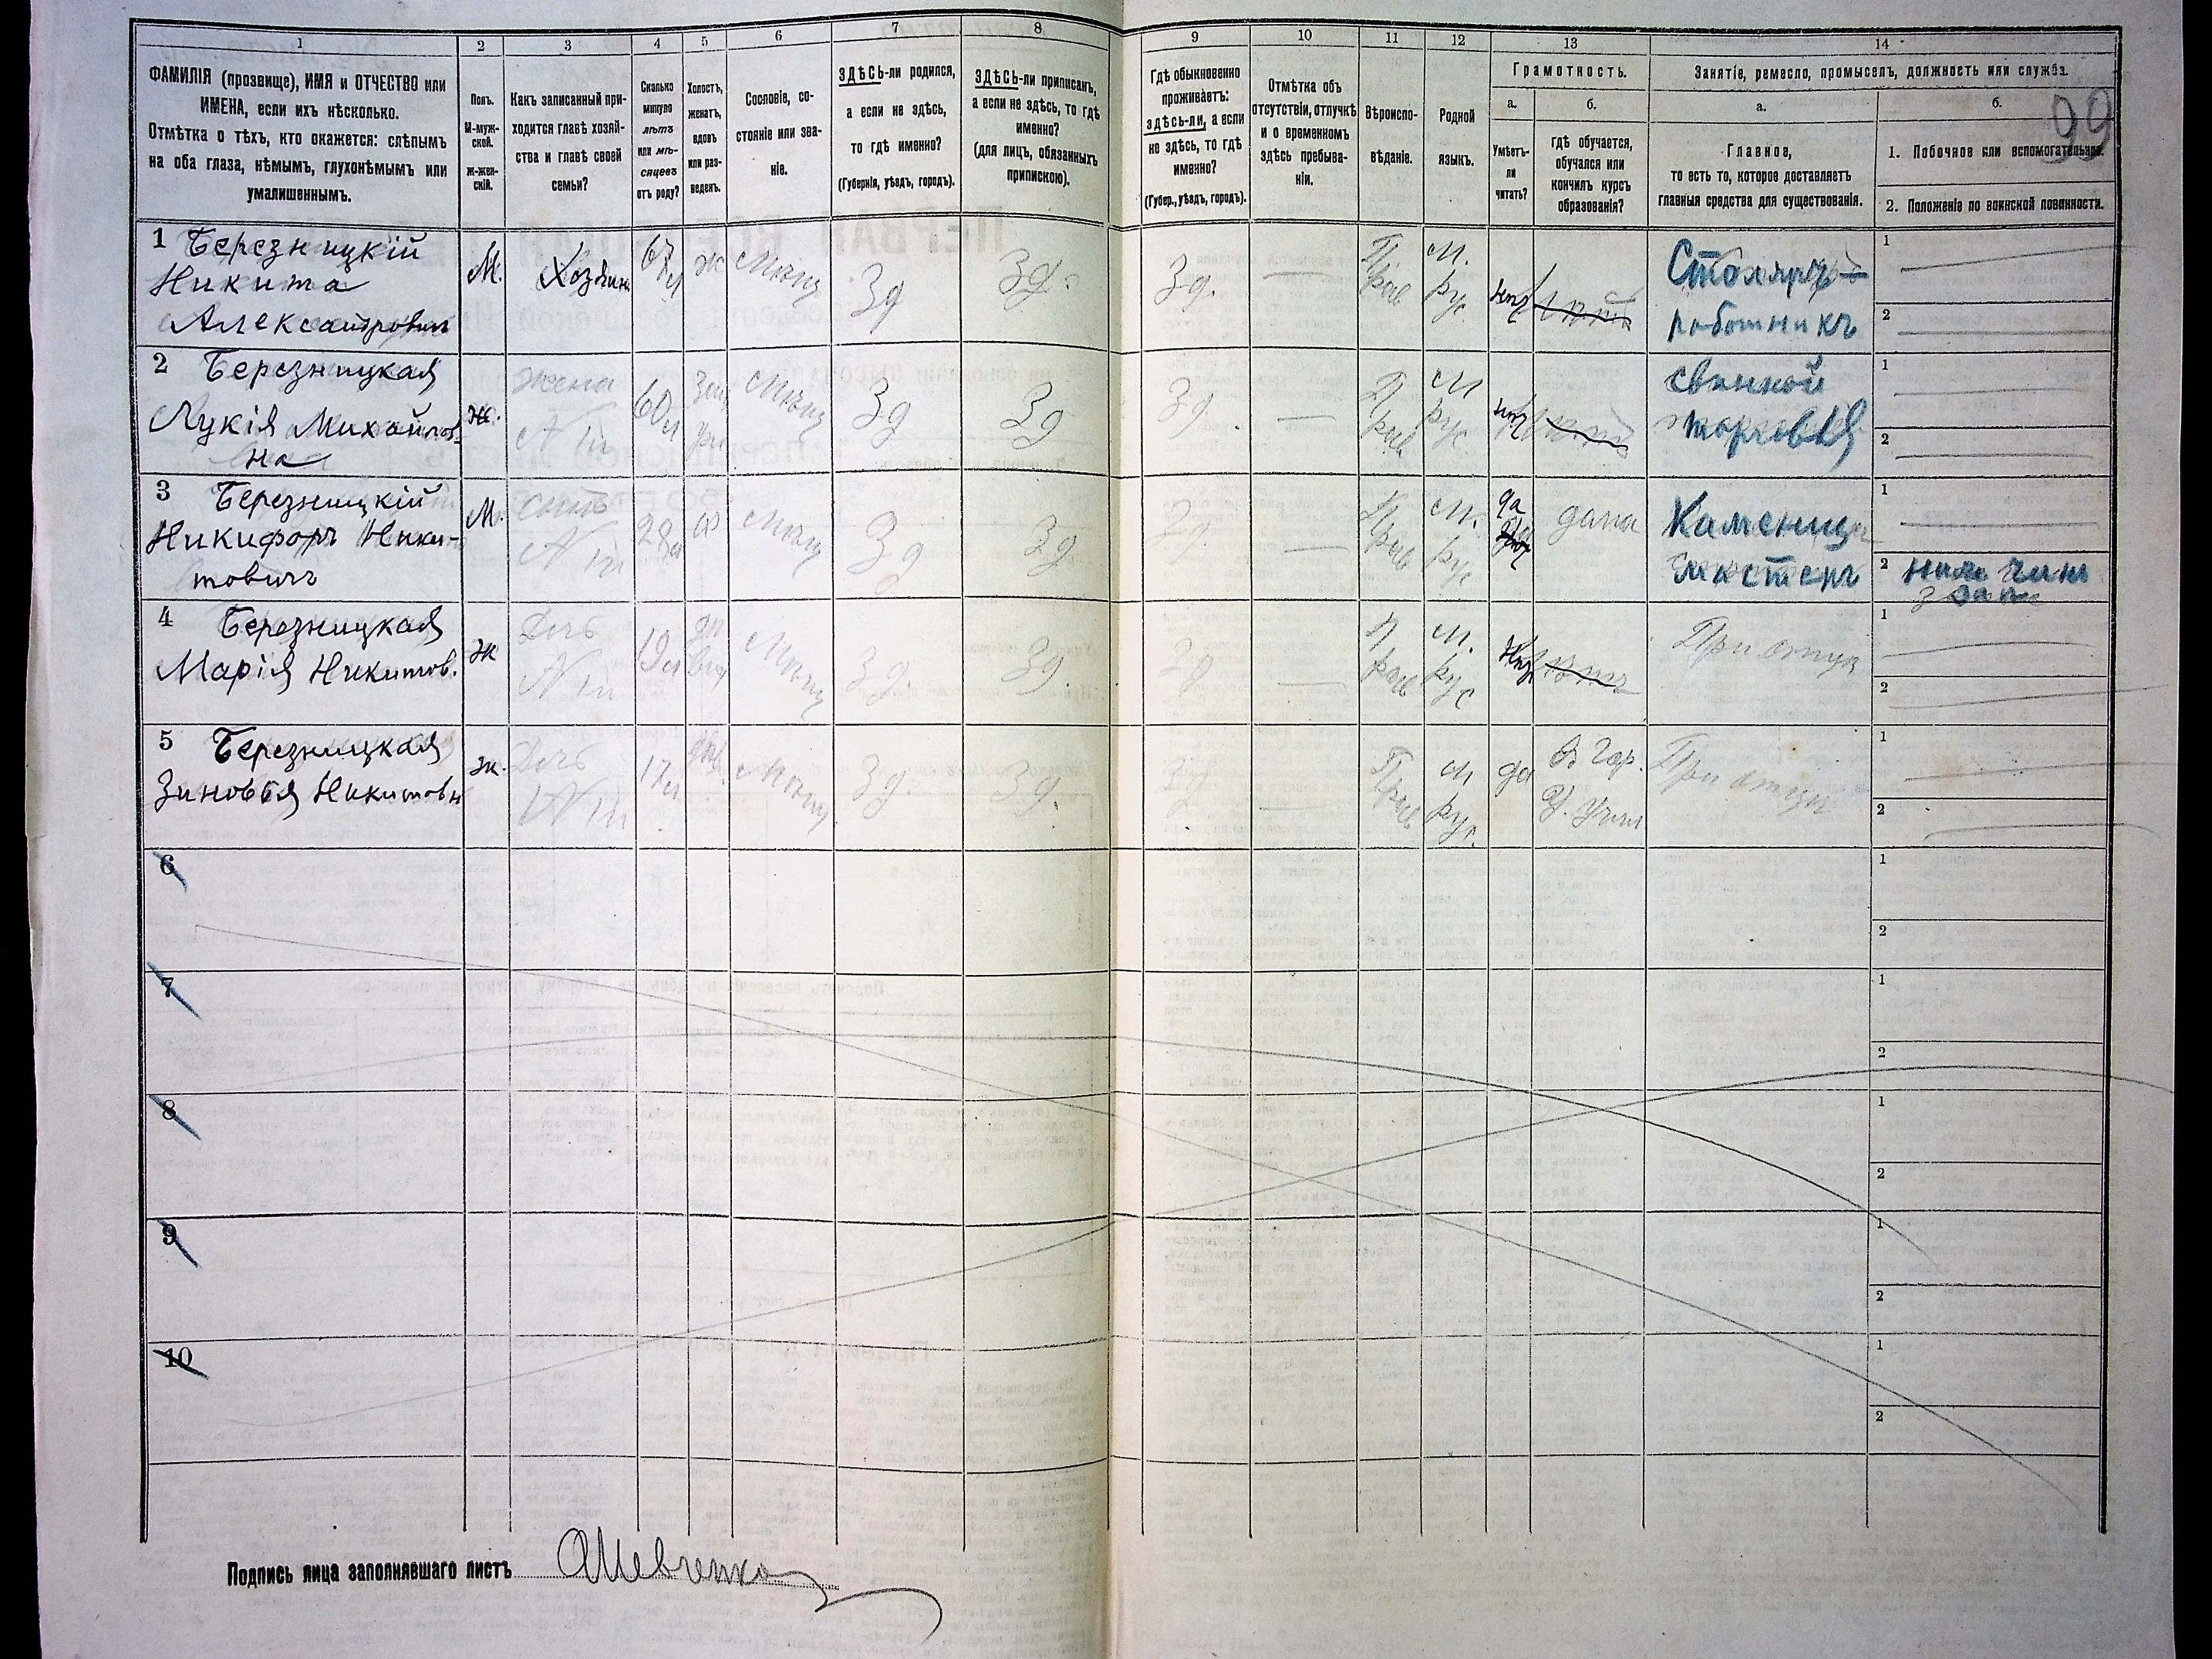 1
2
3
4
5
6
7
8
9
10
11
12
13
14
ФАМИЛІЯ (прозвище), ИМЯ и ОТЧЕСТВО или
ИМЕНА, если ихъ нѣсколько.
Отмѣтка о тѣхъ, кто окажется: слѣпымъ
на оба глаза, нѣмымъ, глухонѣмымъ или
умалишеннымъ.
Полъ.
М-муж-
ской.
Ж-жен-
скій.
Какъ записанный при-
ходится главѣ хозяй-
ства и главѣ своей
семьи?
Сколько
минуло
лѣтъ
или мѣ-
сяцевъ
отъ роду?
Холостъ,
женатъ,
вдовъ
или раз-
веденъ.
Сословіе, со-
стояніе или зва-
ніе.
ЗДѢСЬ-ли родился,
а если не здѣсь,
то гдѣ именно?
(Губернія, уѣздъ, городъ).
ЗДѢСЬ-ли приписанъ,
а если не здѣсь, то гдѣ
именно?
(для лицъ, обязанныхъ
припискою).
Гдѣ обыкновенно
проживаетъ:
здѣсь-ли, а если
не здѣсь, то гдѣ
именно?
(Губер., уѣздъ, городъ).
Отмѣтка объ
отсутствіи, отлучкѣ
и о временномъ
здѣсь пребыва-
ніи.
Вѣроиспо-
вѣданіе.
Родной
языкъ.
Грамотность.
а.
Умѣетъ-
ли
читать?
б.
гдѣ обучается,
обучался или
кончилъ курсъ
образованія?
Занятіе, ремесло, промыселъ, должность или служба.
а.
Главное,
то есть то, которое доставляетъ
главныя средства для существованія.
б.
99
1. Побочное или вспомогательное.
2. Положеніе по воинской повинности.
1 Березницкій
Никита
Александровичъ
М.
Хозяинъ
67 л
ж
Мѣщ
Зд
Зд.
Зд.
Прав
М.
рус
нѣтъ
Столяръ
работникъ
1
2
2 Березницкая
Лукія Михайлов-
на
Ж.
жена
№ 1й
60 л
Зам
Мѣщ
Зд
Зд
Зд.
Прав
М
рус
нѣтъ
свиной
торговля
1
2
3 Березницкій
Никифоръ Ники-
товичъ
М.
сынъ
№ 1й
28 л
Мѣщ
Зд
Зд
Зд.
Прав
М.
рус
да
дома
Каменщи
мастеръ
1
2 ниж чинъ
запас
4 Березницкая
Марія Никитов.
ж
Дочь
№ 1й
19 л
Мѣщ
Зд.
Зд.
Зд
Прав
М.
рус
нѣтъ
При отцѣ
1
2
5 Березницкая
Зиновія Никитовн
ж.
Дочь
№ 1й
17 л
дѣв.
Мѣщ.
Зд.
Зд.
Зд
Прав
М
рус.
да
В Гор.
У. Учил
При отцѣ
1
2
6
1
2
7
1
2
8
1
2
9
1
2
10
1
2
Подпись лица заполнявшаго листъ АШевченко